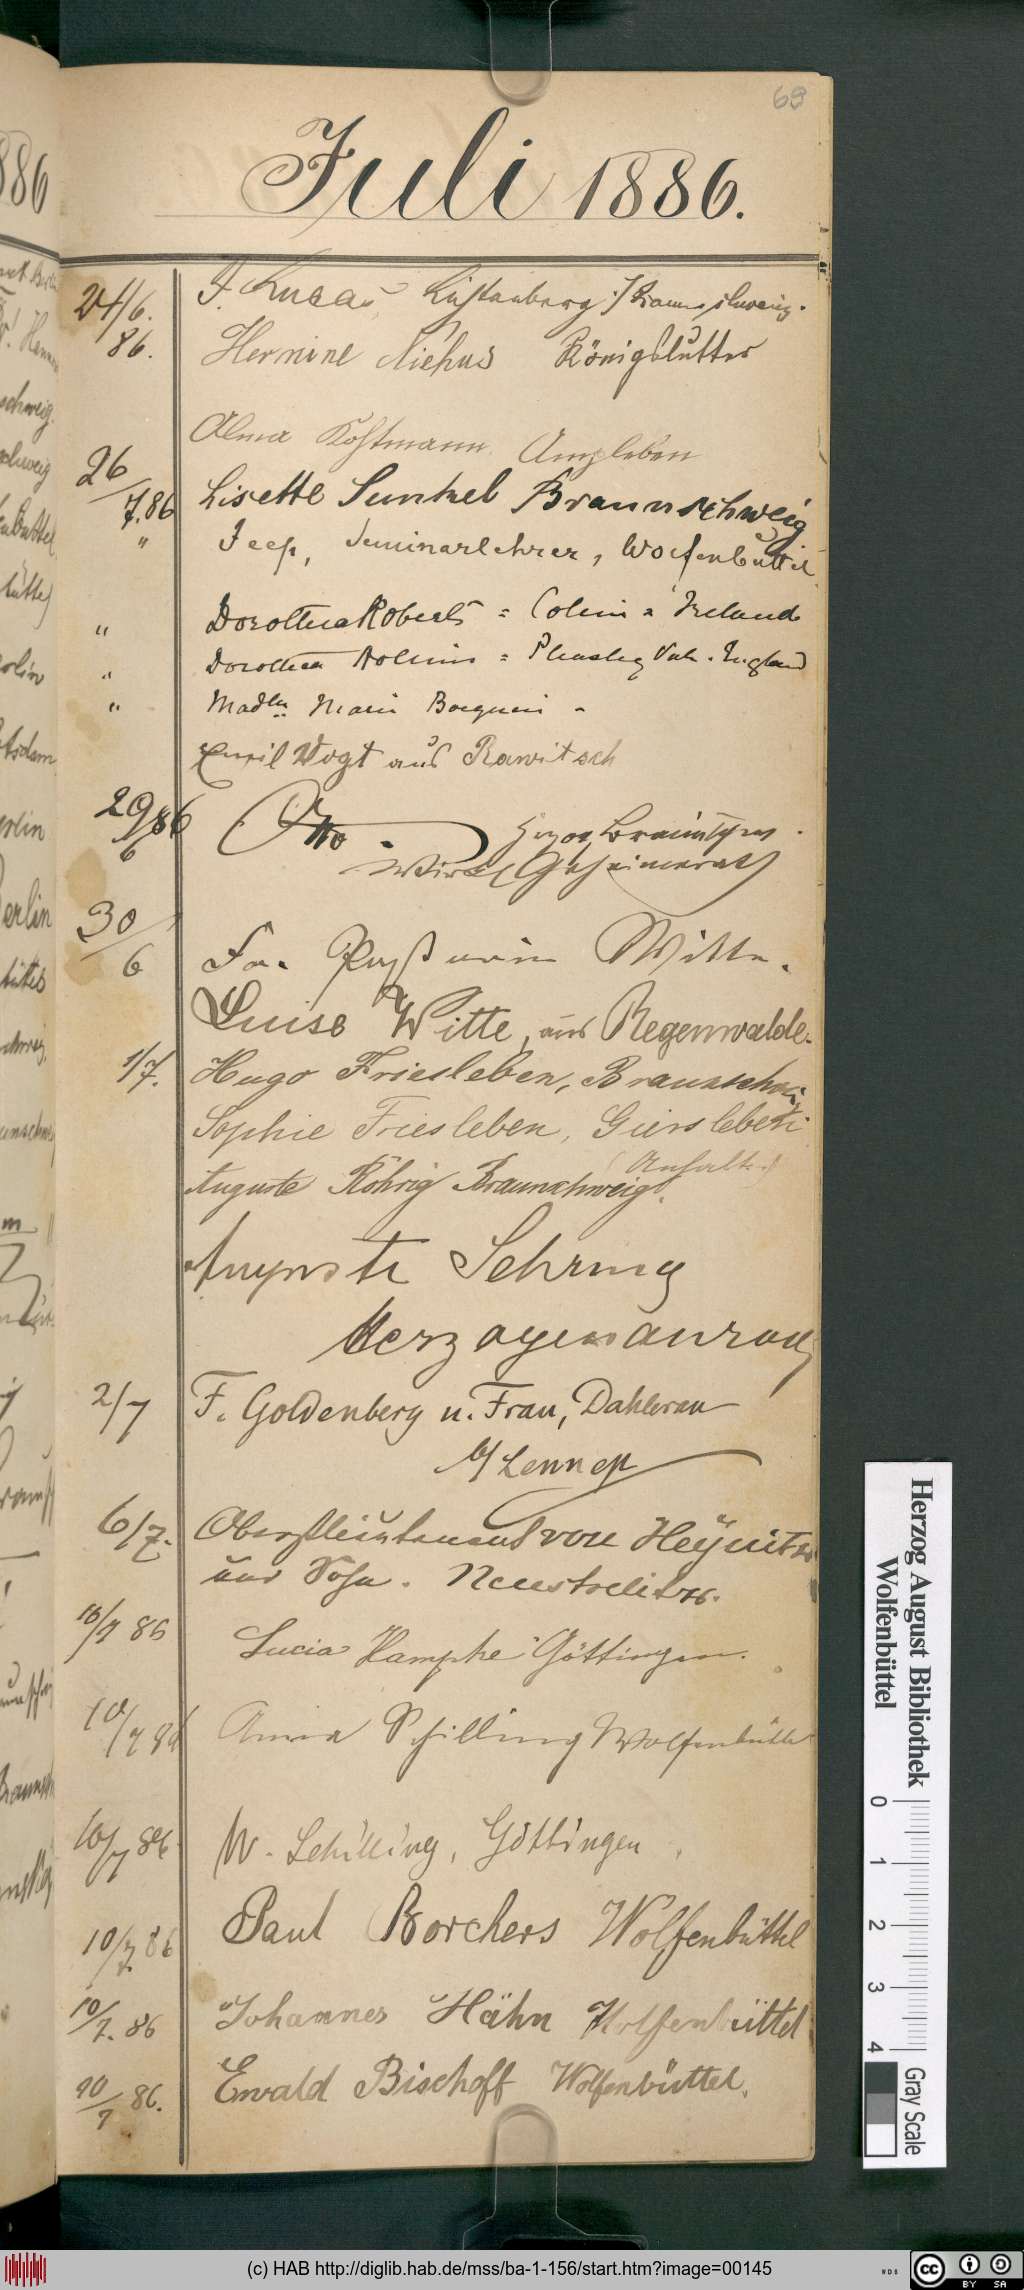 69
Juli 1886.
24/6. J. Lucas, Lichtenberg b/Braunschweig.
86. Hermine Niehus Königslutter
Alma Kostmann. Ampleben
26/7.86 Lisette Sunkel Braunschweig
" Jeep, Seminarlehrer, Wolfenbüttel
" Dorothea Roberts = Ireland
" Dorothea = England
" Marie
Emil Vogt aus Rawitsch
29/6 86 Otto.
Wirkl. Geheimerath
30/6 Fr. Witte.
Luise Witte, aus Regenwalde.
1/7. Hugo Friesleben, Braunschweig
Sophie Friesleben, Giersleben
(Anhalt.)
Auguste Röhrig Braunschweig.
Auguste Sehring
2/7 F. Goldenberg u. Frau, Dahlerau
b/ Lennep
6/7. Oberstleutenant von Heÿnitz
und Sohn. Neustrelitz.
10/7 86 Lucia Kamphe Göttingen.
10/7 86 Anna Schilling Wolfenbüttel
10/7 86. W. Schilling, Göttingen,
10/7 86 Paul Borchers Wolfenbüttel
10/7. 86 Johannes Hähn Wolfenbüttel
10/7 86. Ewald Bischoff Wolfenbüttel.
Herzog August Bibliothek
Wolfenbüttel
0 1 2 3 4
Gray Scale
(c) HAB http://diglib.hab.de/mss/ba-1-156/start.htm?image=00145
WDB
cc BY SA